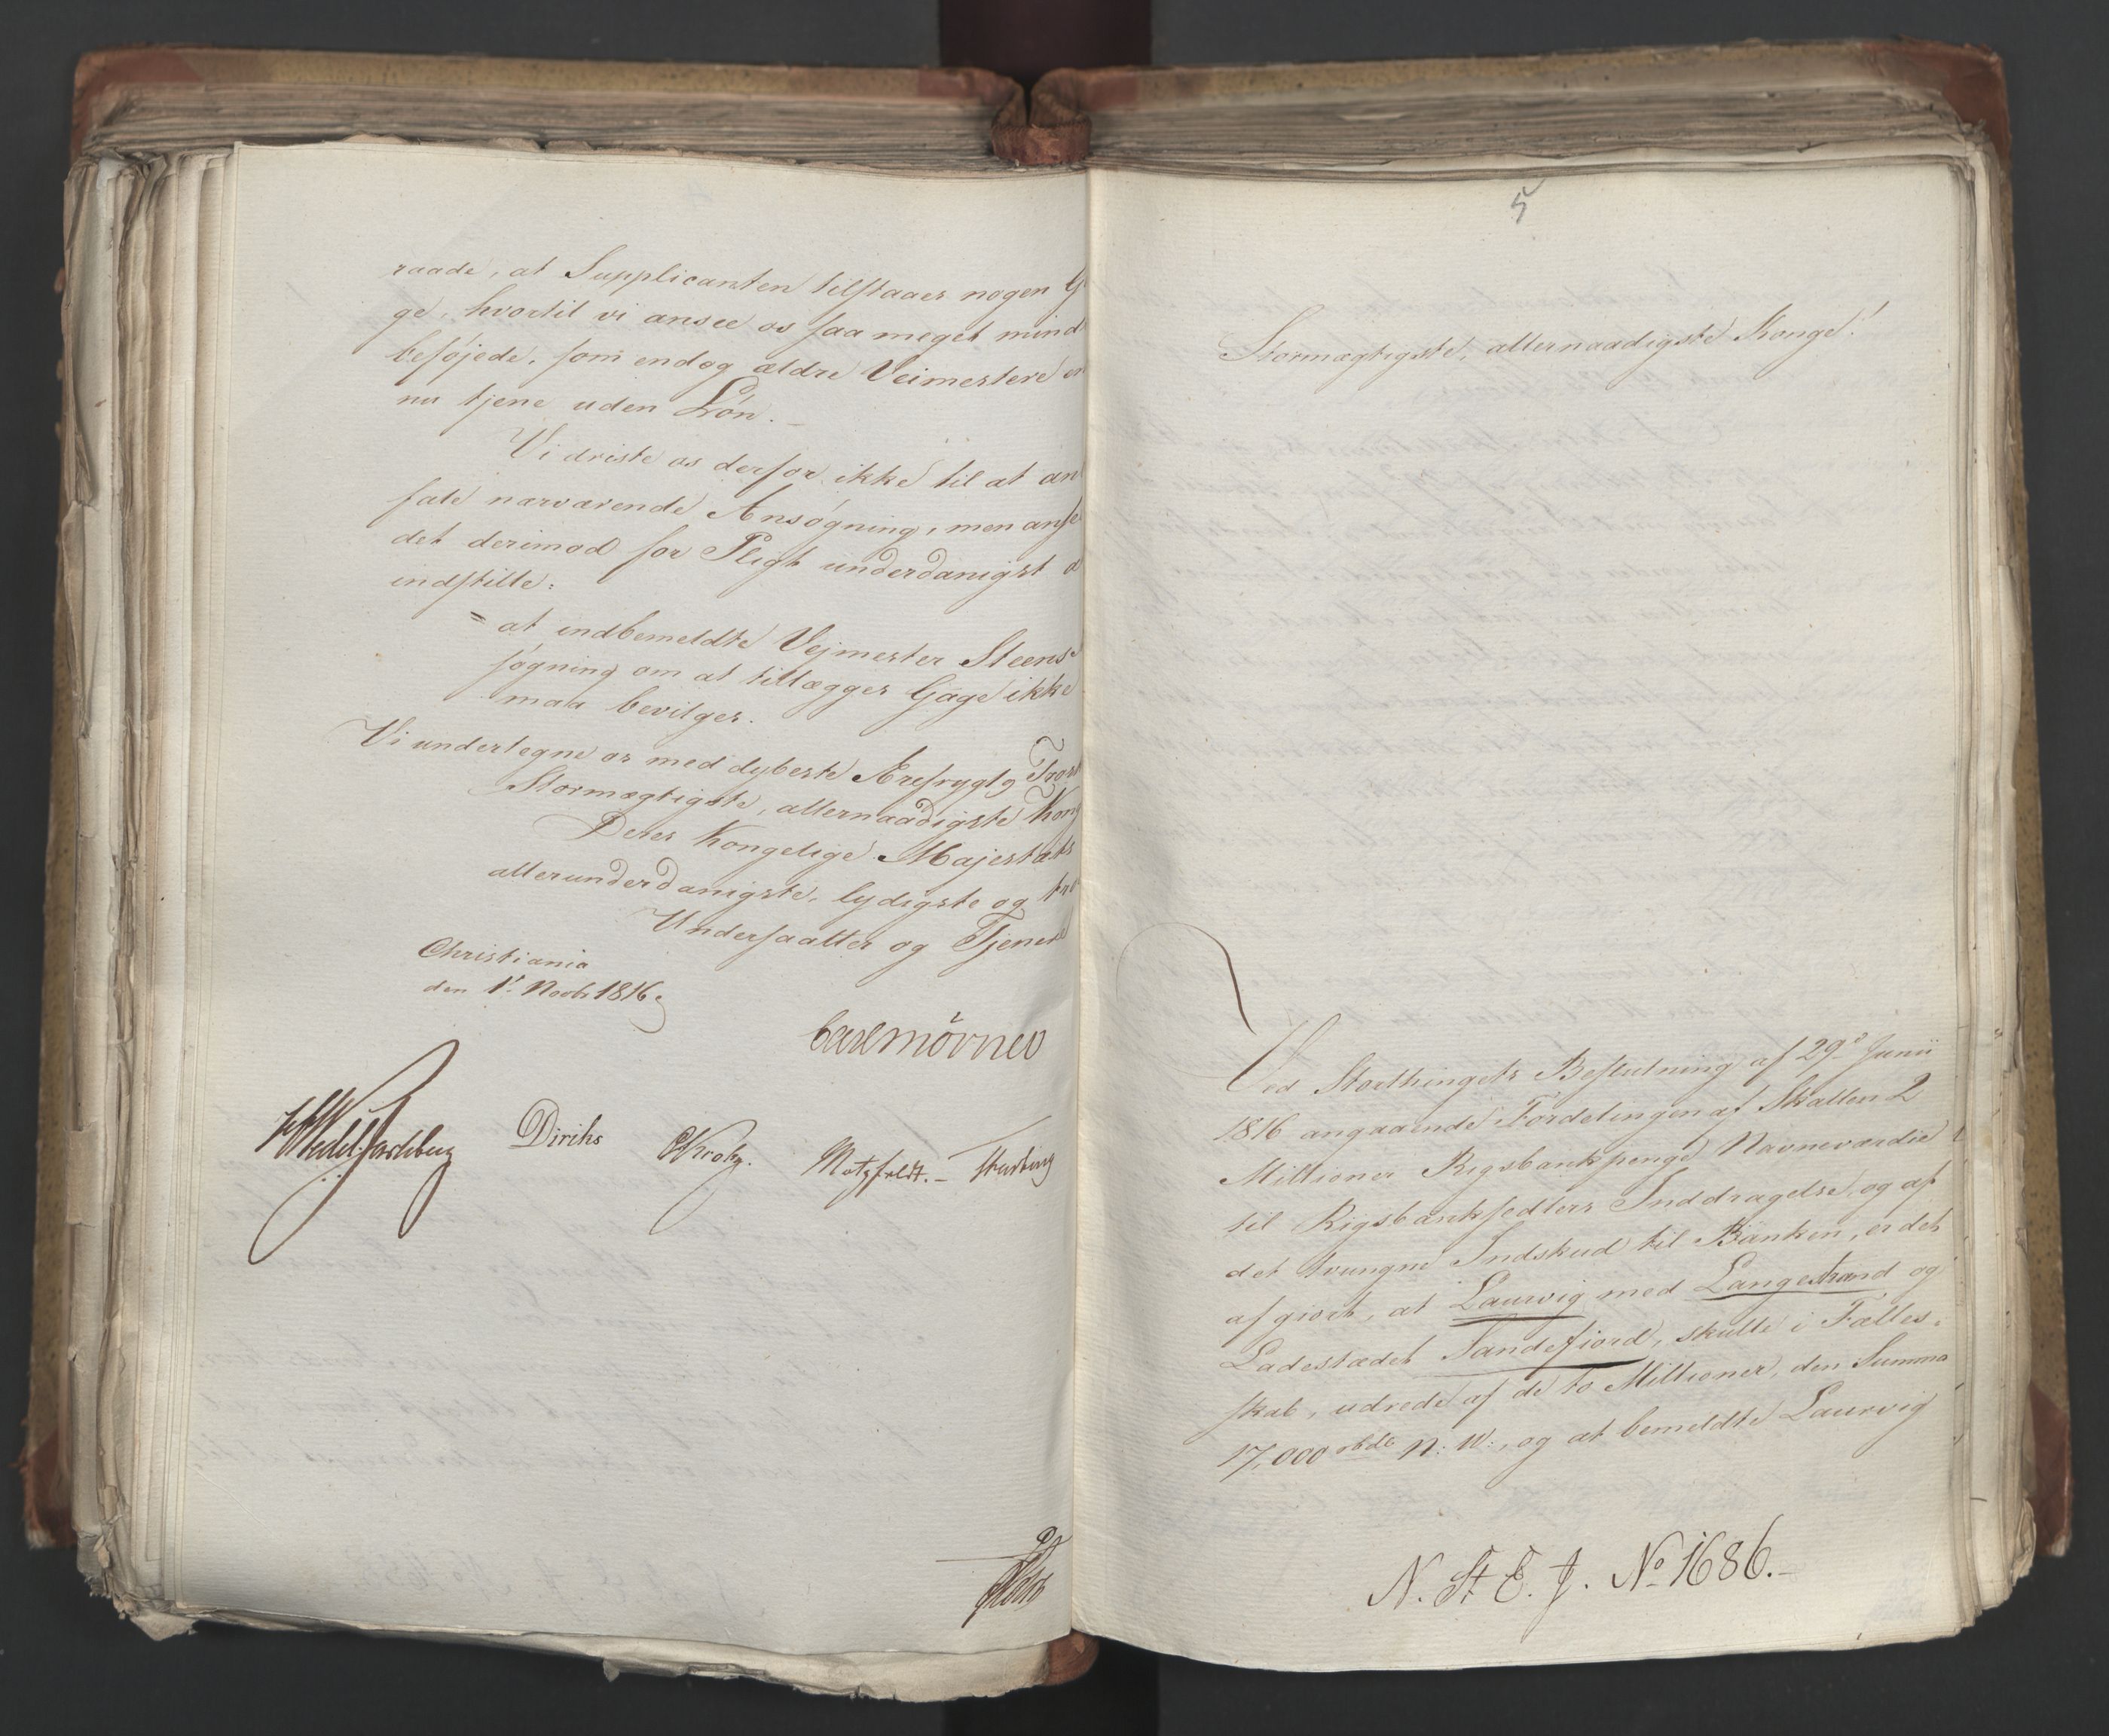 raade, at Supplicanten tilstaaes nogen G
ge, hvortil vi ansee os saa meget mind
beføjede, som endog ældre Veimestere en
nu tjene uden Løn.
Vi driste os derfor ikke til at an
fale nærværende Ansøgning, men anse
det derimod for Pligt underdanigst a
indstille:
= at indbemeldte Vejmester Steens
søgning om at tillægges Gage ikke
maa bevilges.
Vi undertegne os med dybeste Ærefrygt
Stormægtigste, allernaadigste Kong
Deres Kongelige Majestæts
allerunderdanigste, lydigste og tro
Undersaatter og Tjenere
Christiania
den 1ste Novbr 1816.
Carl Mörner
Wedel Jarlsberg Diriks Krohg. Motzfeldt. Hertzberg
5
Stormægtigste, allernaadigste Konge!
Ved Storthingets Beslutning af 29de Junii
1816 angaaende Fordelingen af Skatten 2
Millioner Rigsbankpenge Navneværdie
til Rigsbanksedlers Inddragelse, og af
det tvungne Indskud til Banken, er det
afgiort, at Laurvig med Langestrand og
Ladestædet Sandefiord, skulle i Fælles-
skab, udrede af de to Millioner, den Summa
17,000 rbdlr N: W:, og at bemeldte Laurvig
N. St. E. J. No 1686.